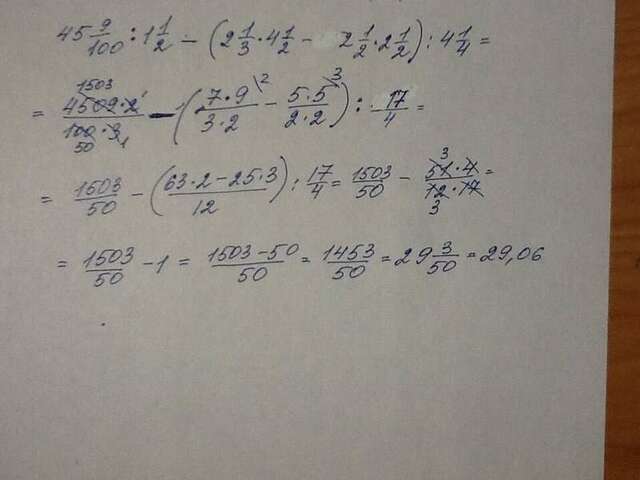 45 9/100 : 1 1/2 - (2 1/3 · 4 1/2 - 2 1/2 · 2 1/2) : 4 1/4 =
= 4509·2/100·3 - (7·9/3·2 - 5·5/2·2) : 17/4 =
= 1503/50 - (63·2-25·3/12) : 17/4 = 1503/50 - 51·4/12·17 =
= 1503/50 - 1 = 1503-50/50 = 1453/50 = 29 3/50 = 29,06